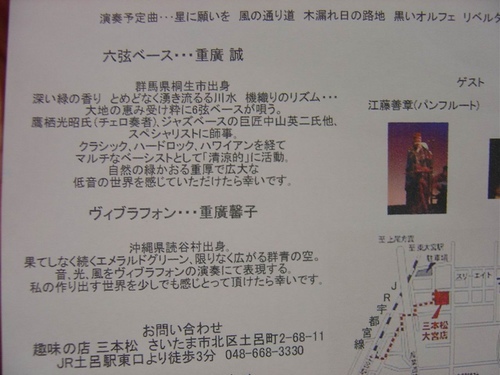 演奏予定曲･･･星に願いを 風の通り道 木漏れ日の路地 黒いオルフェ リベルタ
六弦ベース･･･重廣 誠
群馬県桐生市出身
深い緑の香り とめどなく湧き流るる川水 機織りのリズム･･･
大地の恵み受け粋に6弦ベースが唄う。
鷹栖光昭氏(チェロ奏者)、ジャズベースの巨匠中山英二氏他、
スペシャリストに師事。
クラシック、ハードロック、ハワイアンを経て
マルチなベーシストとして「清涼的」に活動。
自然のゆかおる重厚で広大な
低音の世界を感じていただけたら幸いです。
ヴィブラフォン･･･重廣馨子
沖縄県読谷村出身。
果てしなく続くエメラルドグリーン、限りなく広がる群青の空。
音、光、風をヴィブラフォンの演奏にて表現する。
私の作り出す世界を少しでも感じとって頂けたら幸いです。
お問い合わせ
趣味の店 三本松 さいたま市北区土呂町2-68-11
JR土呂駅東口より徒歩3分 048-668-3330
ゲスト
江藤善章(パンフルート)
至 上尾
至 東大宮駅
駐車場
スリーエイト
JR宇都宮線
三本松
大宮店